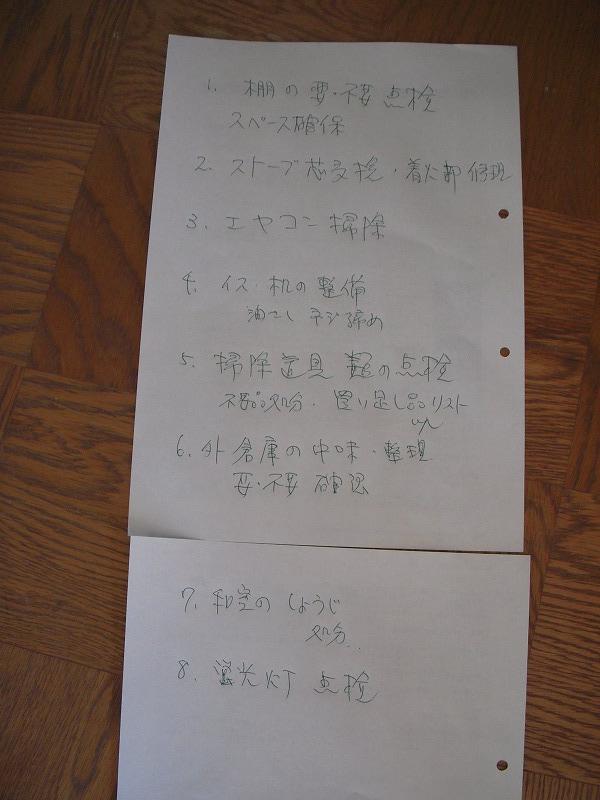 1. 棚の要・不要 点検
スペース確保
2. ストーブ芯点検・着火部修理
3. エヤコン掃除
4. イス・机の整備
油さし ネジ締め
5. 掃除道具 の点検
不要品処分・買い足し品リスト
up
6. 外倉庫の中味・整理
要・不要 確認
7. 和室の しょうじ
処分..
8. 蛍光灯 点検